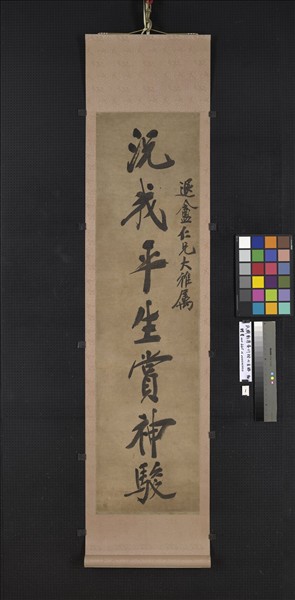 退盦仁兄大雅属
況我平生賞神駿